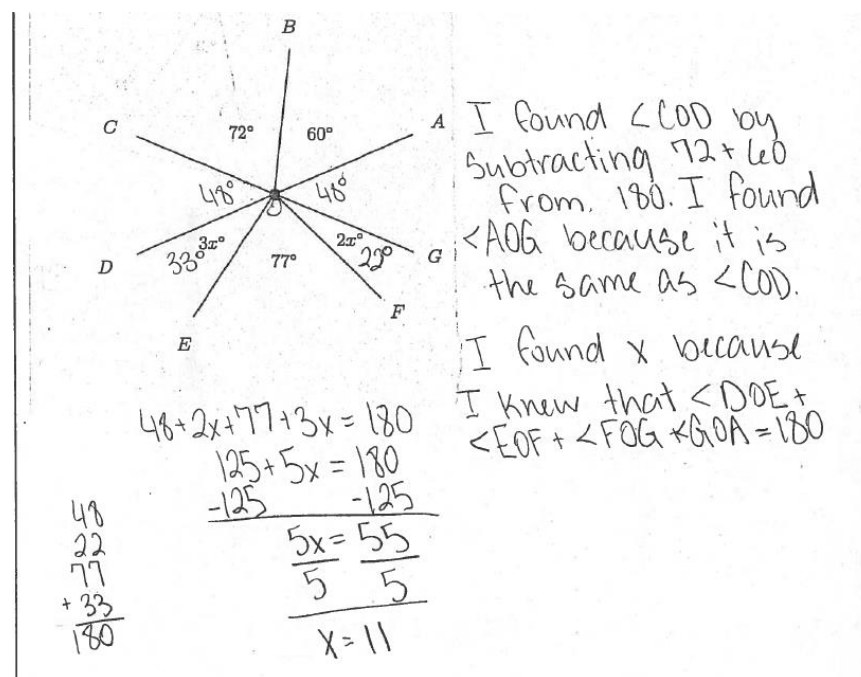 B
C
72°
60°
A
48°
48°
O
D
3x°
33°
77°
2x°
22°
G
F
E
I found <COD by
subtracting 72+60
from. 180. I found
<AOG because it is
the same as <COD.
I found x because
I knew that <DOE+
<EOF+ <FOG +<GOA=180
48+2x+77+3x=180
125+5x=180
-125 -125
5x=55
5 5
x=11
48
22
77
+33
180